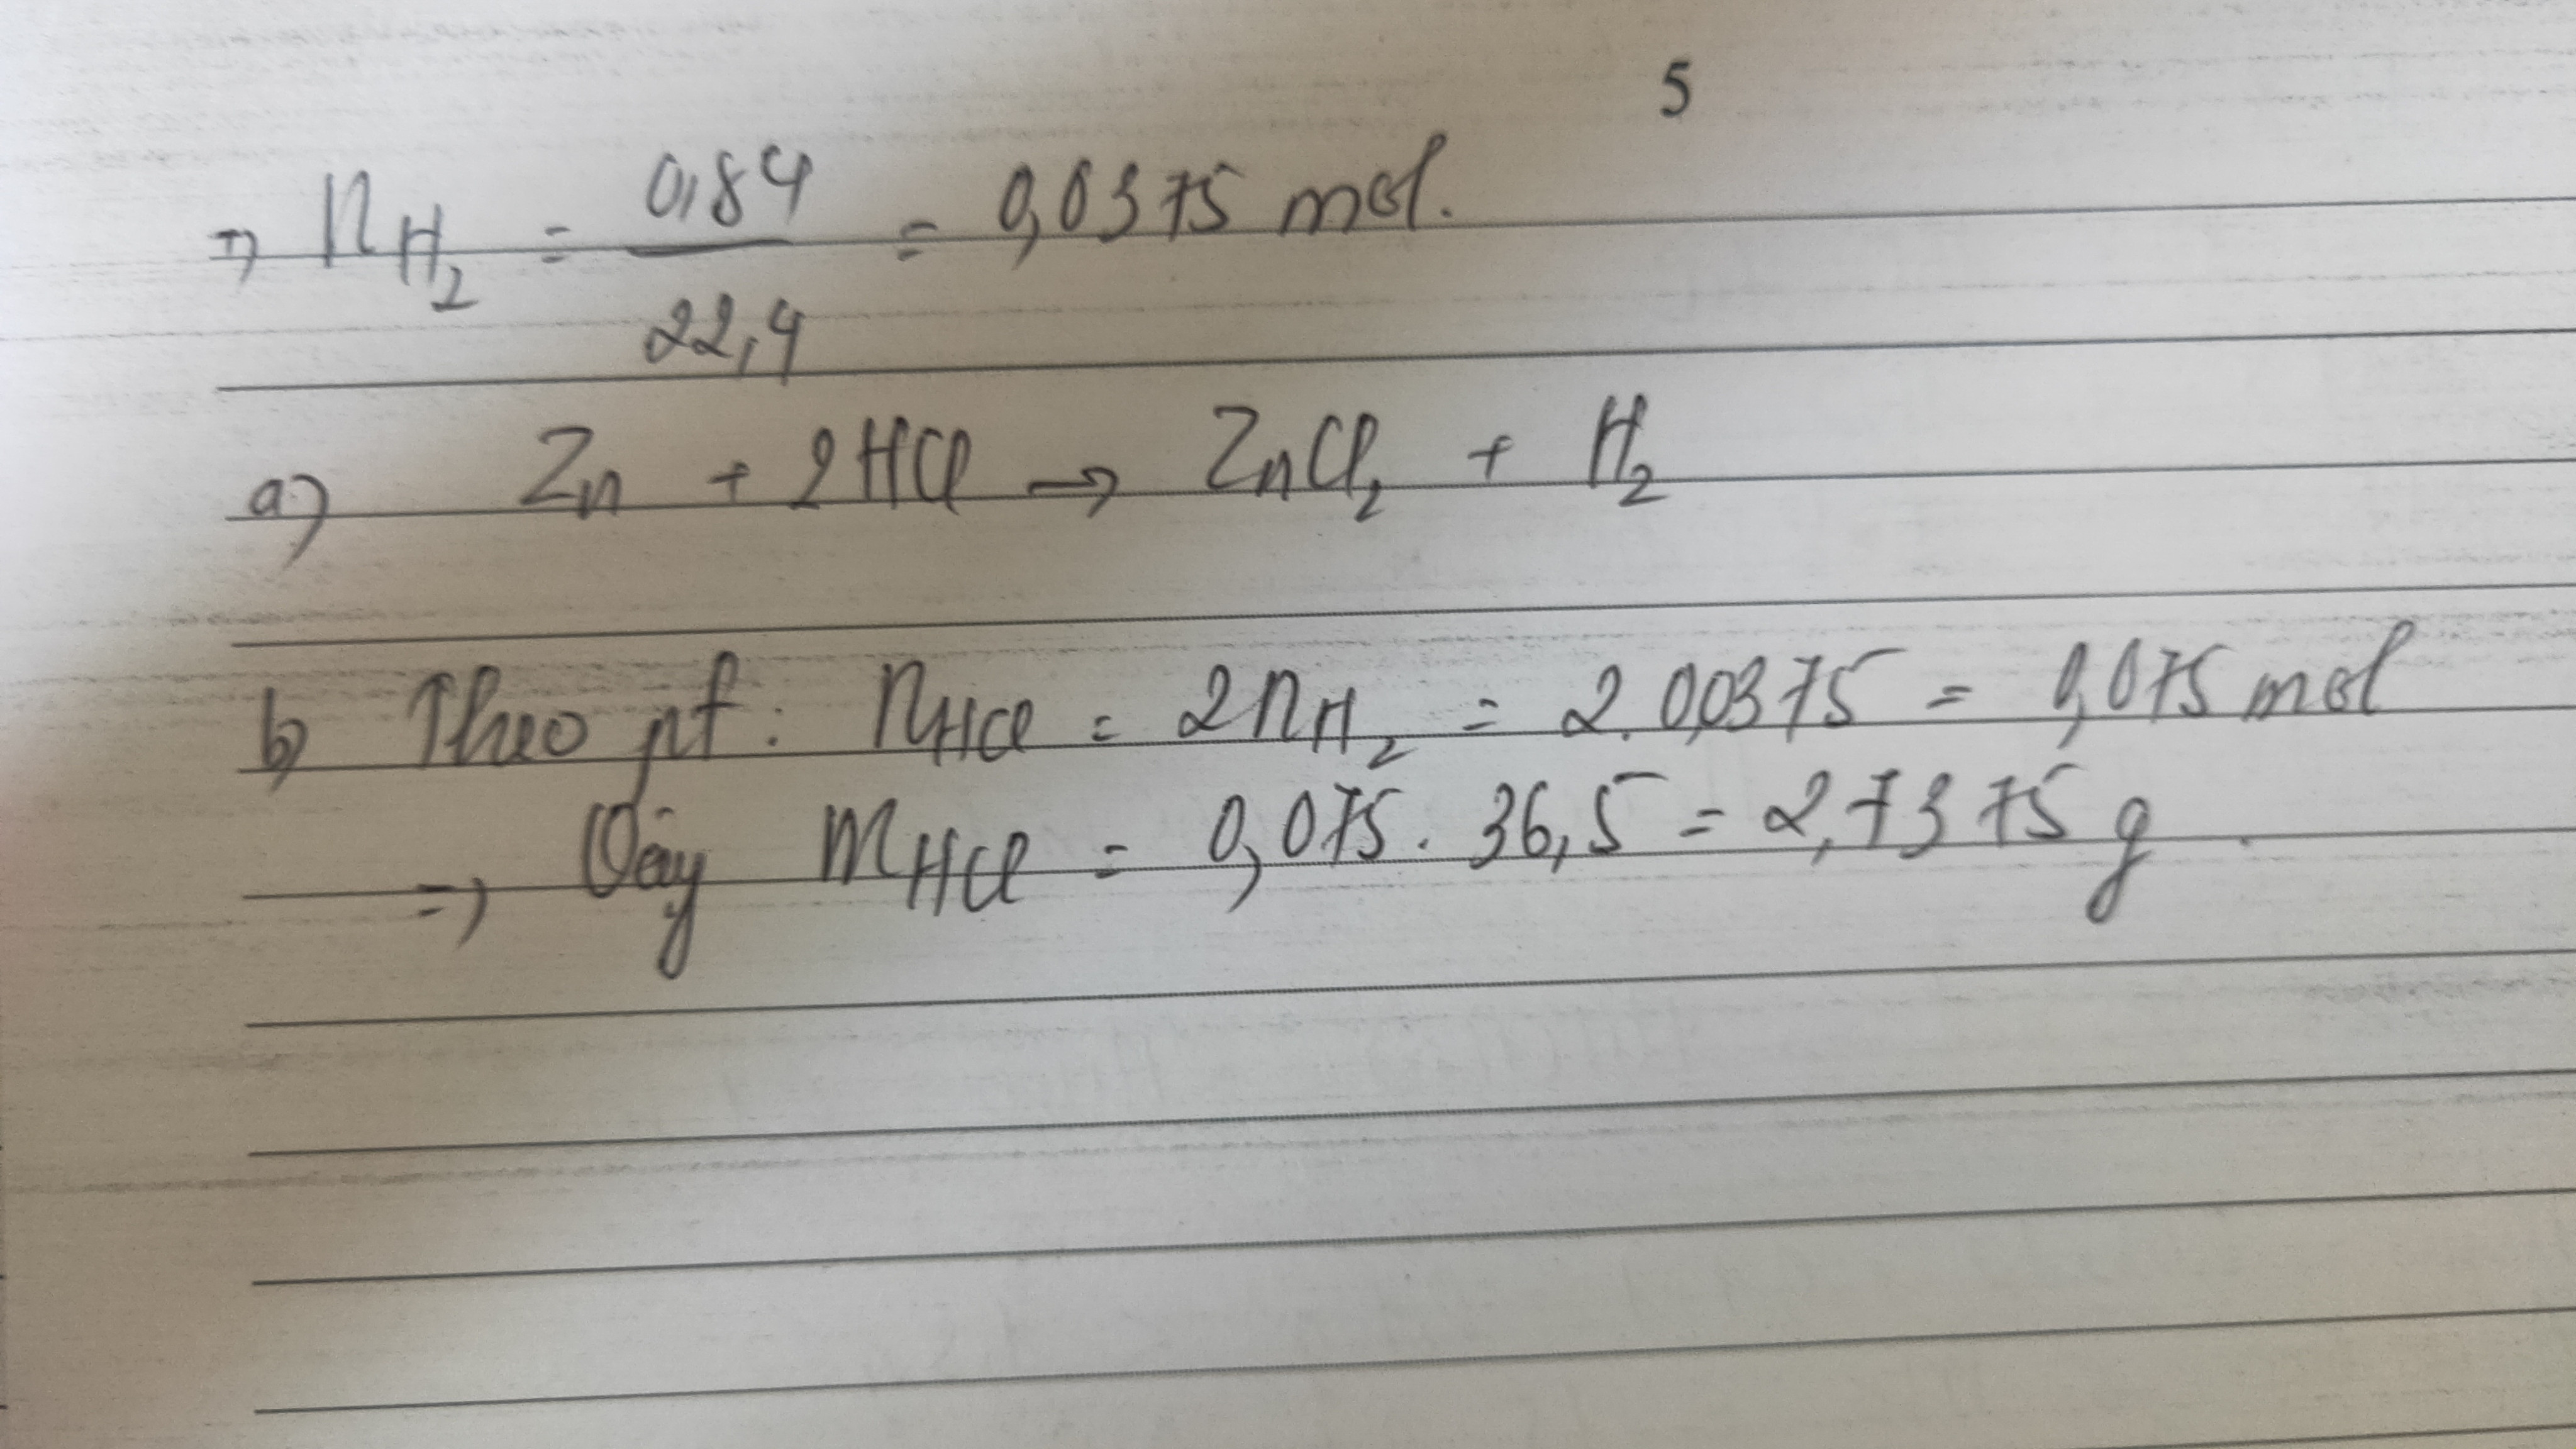 5
=> nH₂ = 0,84/22,4 = 0,0375 mol.
a) Zn + 2HCl → ZnCl₂ + H₂
b) Theo pt: nHCl = 2nH₂ = 2.0,0375 = 0,075 mol
=> Vậy mHCl = 0,075. 36,5 = 2,7375 g